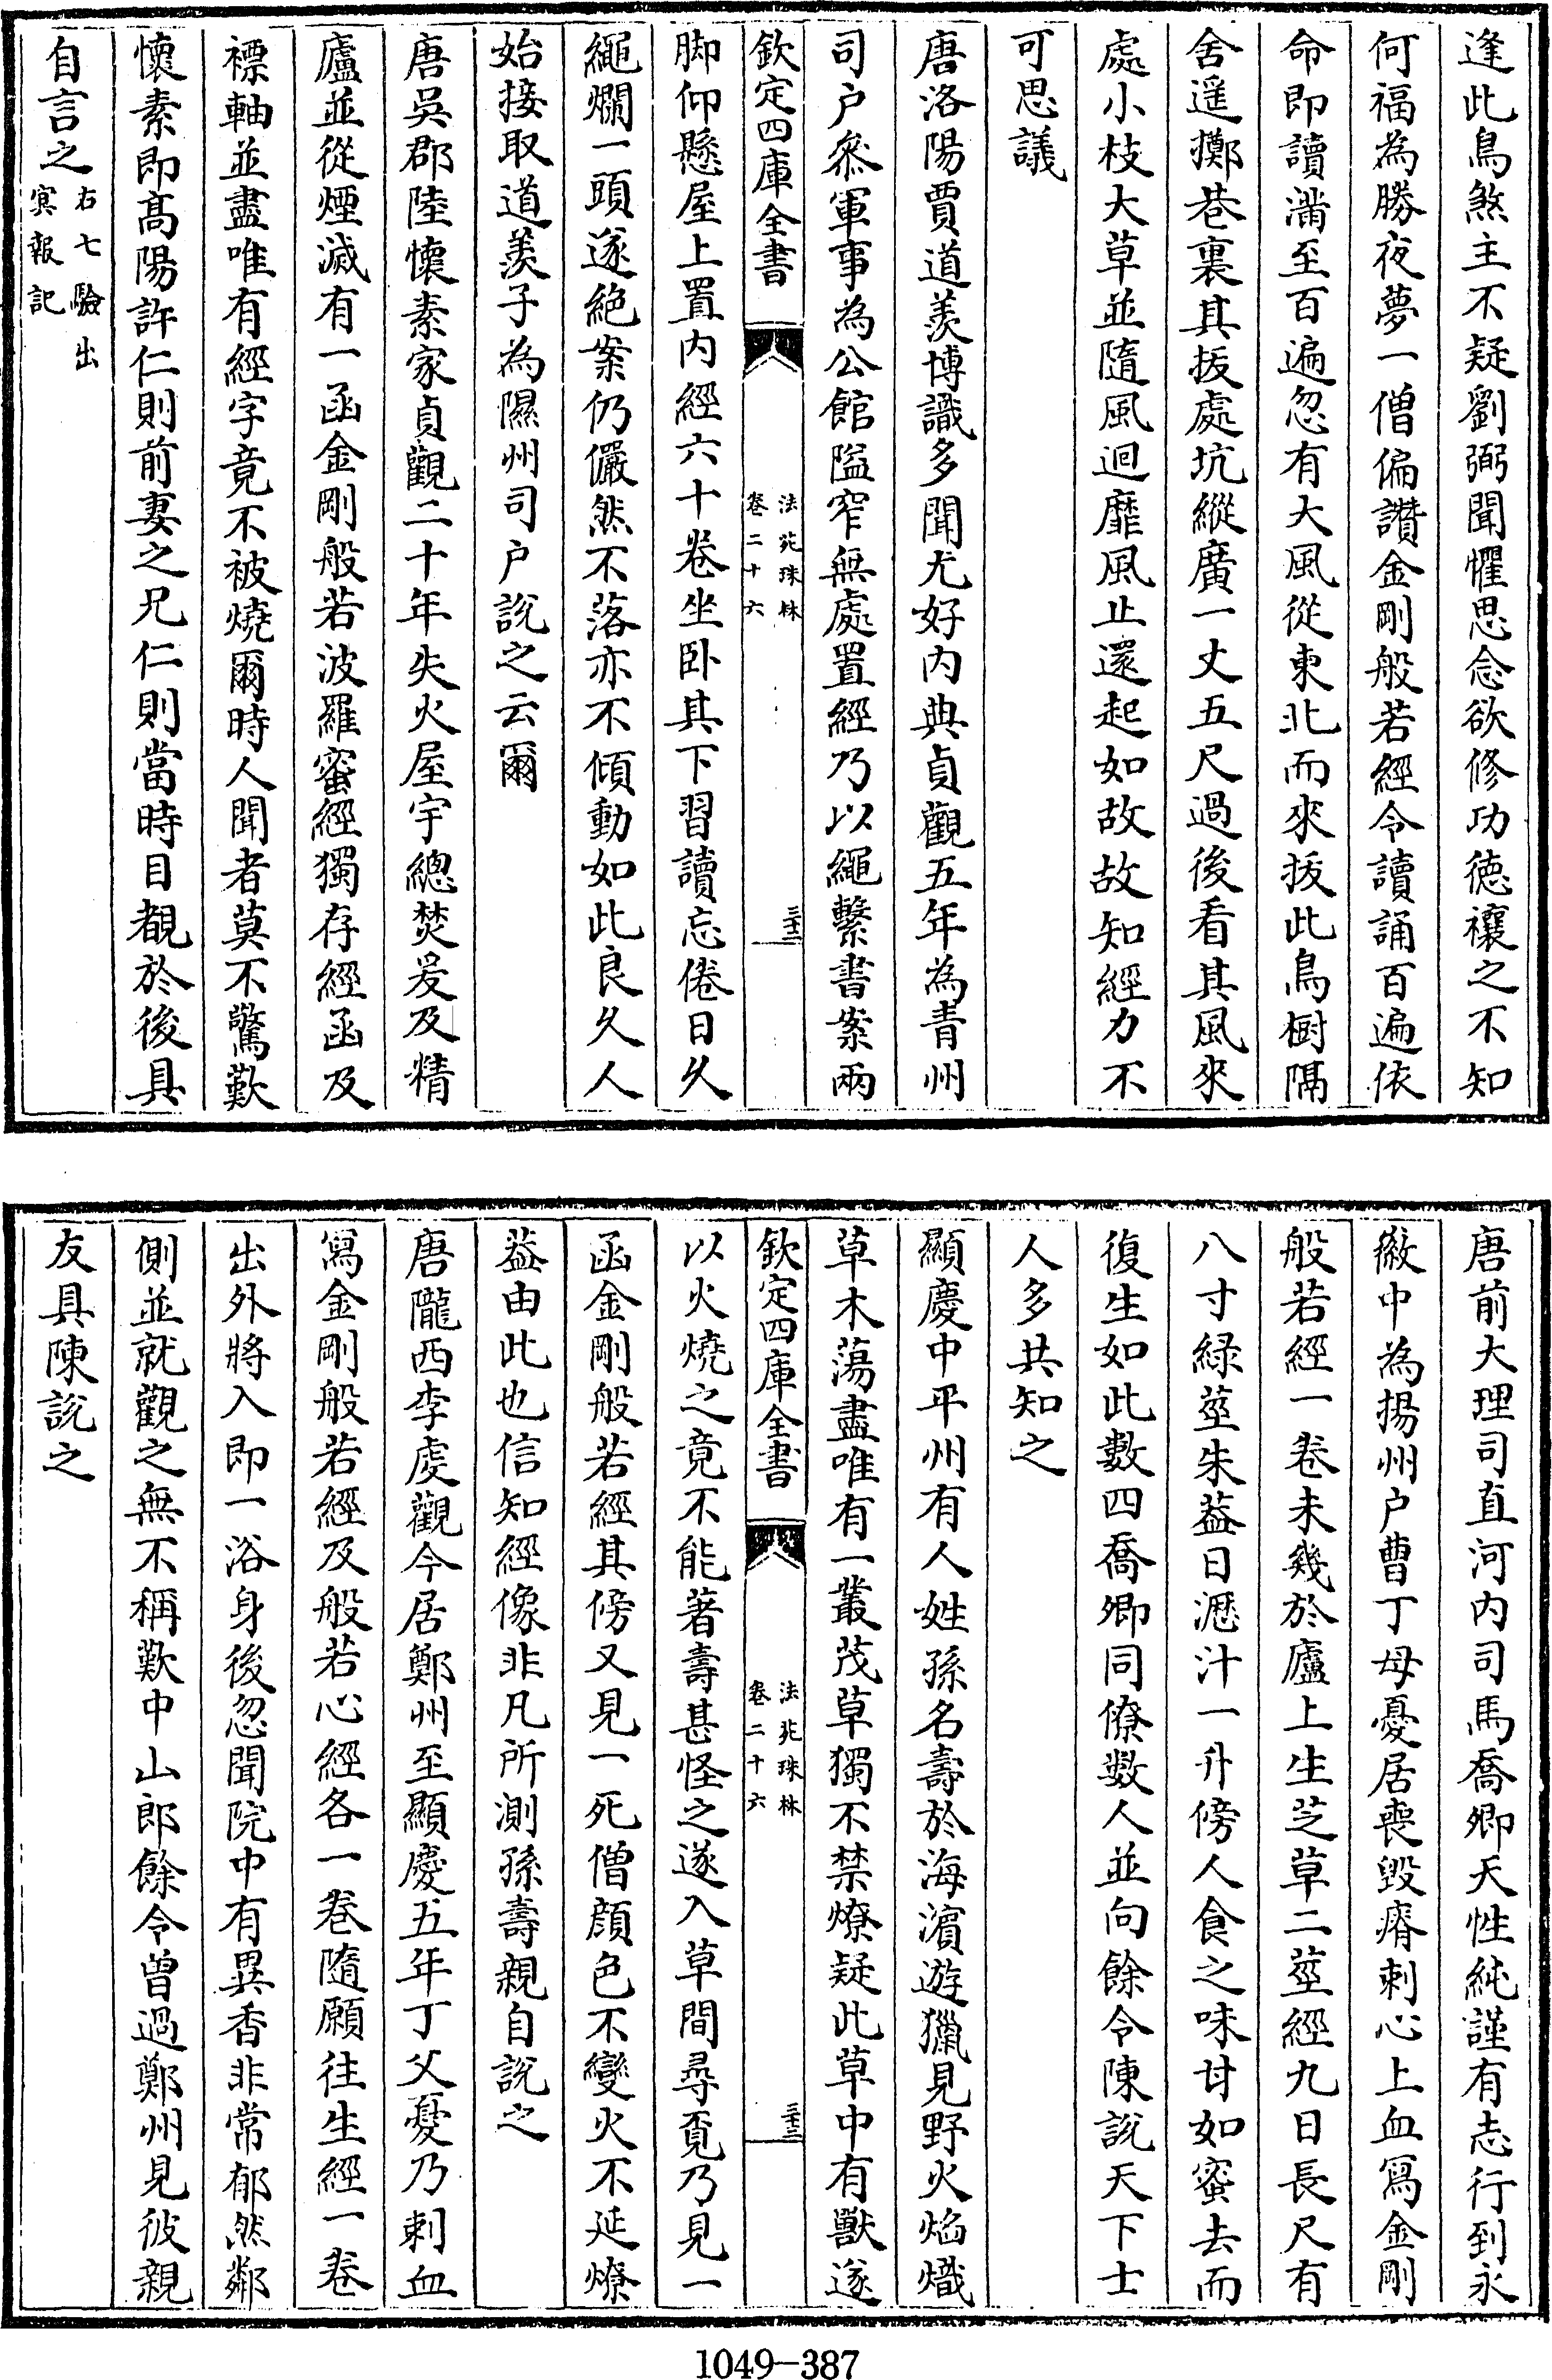 逢此鳥煞主不疑劉弼聞懼思念欲修功徳禳之不知
何福為勝夜夢一僧偏讃金剛般若經令讀誦百遍依
命即讀滿至百遍忽有大風從東北而來拔此鳥樹隔
舍遥擲巷裏其拔處坑縱廣一丈五尺過後看其風來
處小枝大草並隨風迴靡風止還起如故故知經力不
可思議
唐洛陽賈道羨博識多聞尤好内典貞觀五年為青州
司户叅軍事為公館隘窄無處置經乃以繩繫書案兩
欽定四庫全書
法苑珠林
卷二十六
三十二
脚仰懸屋上置内經六十卷坐卧其下習讀忘倦日久
繩爛一頭遂絕案仍儼然不落亦不傾動如此良久人
始接取道羨子為隰州司户說之云爾
唐吳郡陸懷素家貞觀二十年失火屋宇總焚爰及精
廬並從煙滅有一函金剛般若波羅蜜經獨存經函及
褾軸並盡唯有經字竟不被燒爾時人聞者莫不驚歎
懷素即髙陽許仁則前妻之兄仁則當時目覩於後具
自言之
右七驗出
冥報記
唐前大理司直河内司馬喬卿天性純謹有志行到永
徽中為揚州户曹丁母憂居喪毁瘠刺心上血寫金剛
般若經一卷未幾於廬上生芝草二莖經九日長尺有
八寸緑莖朱葢日瀝汁一升傍人食之味甘如蜜去而
復生如此數四喬卿同僚数人並向餘令陳說天下士
人多共知之
顯慶中平州有人姓孫名壽於海濵遊獵見野火焰熾
草木蕩盡唯有一叢茂草獨不禁燎疑此草中有獸遂
欽定四庫全書
法苑珠林
卷二十六
三十三
以火燒之竟不能著壽甚怪之遂入草間尋覔乃見一
函金剛般若經其傍又見一死僧顔色不變火不延燎
葢由此也信知經像非凡所測孫壽親自說之
唐隴西李虔觀今居鄭州至顯慶五年丁父憂乃刺血
寫金剛般若經及般若心經各一卷隨願往生經一卷
出外將入即一浴身後忽聞院中有異香非常郁然鄰
側並就觀之無不稱歎中山郎餘令曽過鄭州見彼親
友具陳説之
1049-387